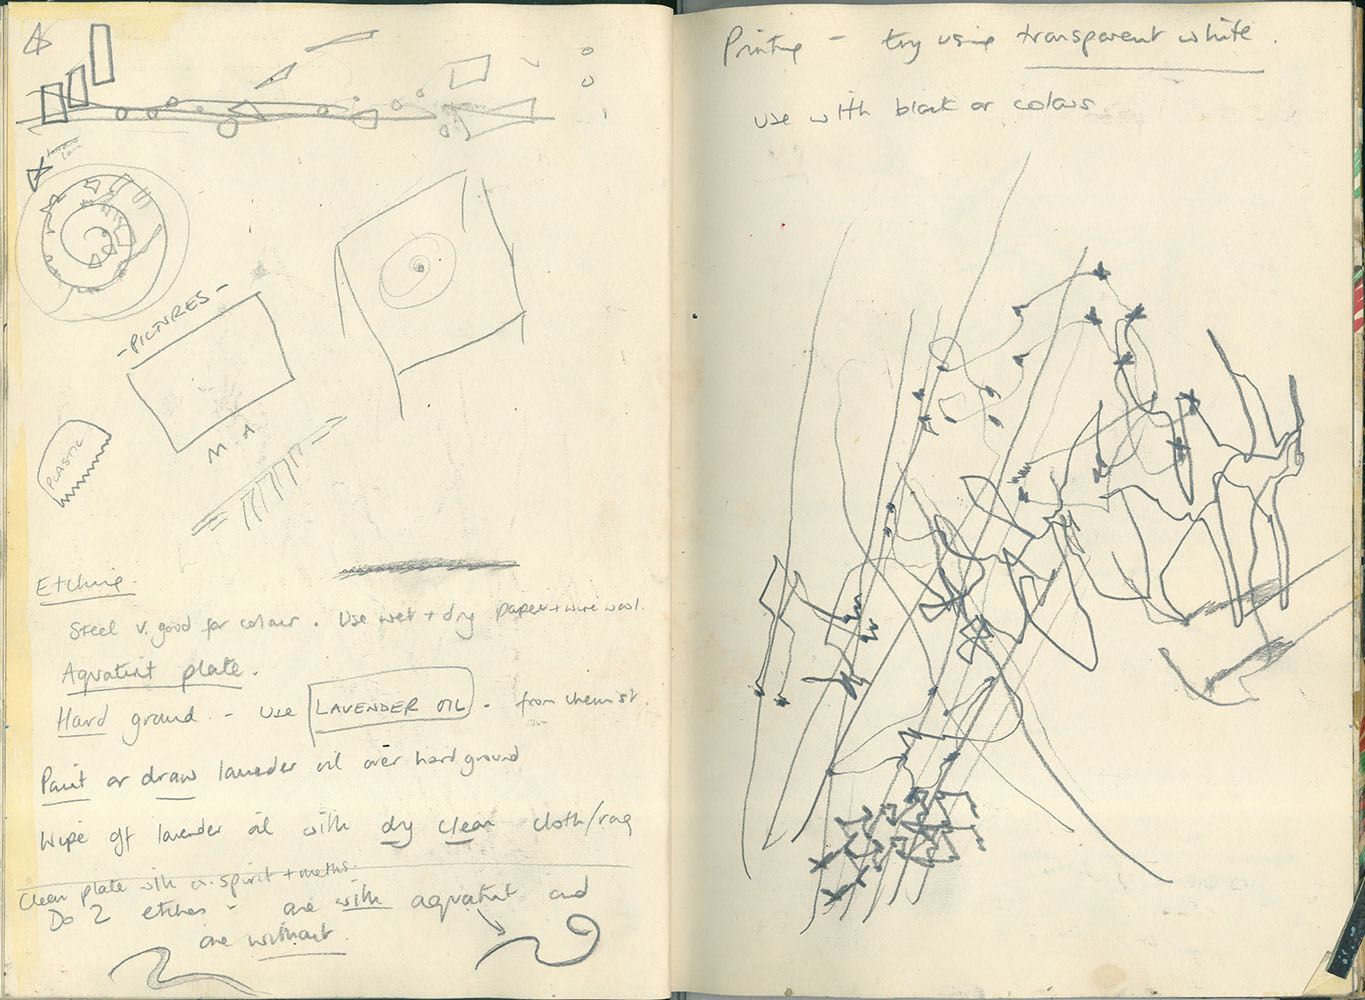 -PICTURES-
M.A.
PLASTIC
Etching.
Steel v. good for colour. Use wet + dry paper + wire wool.
Aquatint plate.
Hard ground - use LAVENDER OIL. from chemist.
Paint or draw lavender oil over hard ground
Wipe off lavender oil with dry clean cloth/rag
Clean plate with w. spirit + meths.
Do 2 etches - one with aquatint and
one without.
Printing - try using transparent white.
use with black or colours